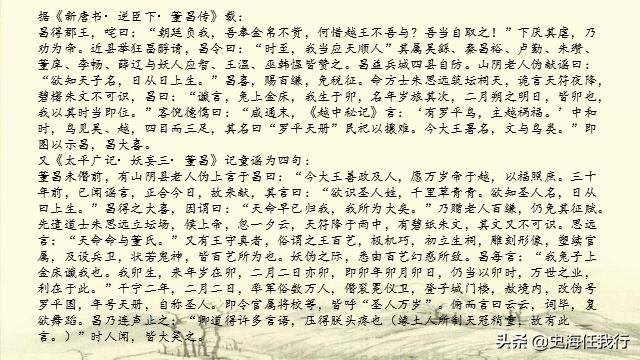 据《新唐书·逆臣下·董昌传》载：
昌得郡王，咤曰：“朝廷负我，吾奉金帛不赀，何惜越王不吾与？吾当自取之！”下厌其虐，乃
劝为帝。近县举狂昌醇请，昌令曰：“时至，我当应天顺人”其属吴繇、秦昌裕、卢勤、朱瓒、
董庠、李畅、薛辽与妖人应智、王温、巫韩愠皆赞之。昌益兵城四县自防。山阴老人伪献谣曰：
“欲知天子名，日从日上生。”昌喜，赐百缣，免税征。命方士朱思远筑坛祠天，诡言天符夜降，
碧楮朱文不可识，昌曰：“谶言，兔上金床，我生于卯，名年岁旅其次，二月朔之明日，皆卯也，
我以其时当即位。”客倪德儒曰：“咸通末，《越中秘记》言：‘有罗平鸟，主越祸福。’中和
时，鸟见吴、越，四目而三足，其名曰“罗平天册”民祀以攘难。今大王署名，文与鸟类。”即
图以示昌，昌大喜。
又《太平广记·妖妄三·董昌》记童谣为四句：
董昌未僭前，有山阴县老人伪上言于昌曰：“今大王善政及人，愿万岁帝于越，以福照庶。三十
年前，已闻谣言，正合今日，故来献，其言曰：“欲识圣人姓，千里草青青。欲知圣人名，日从
日上生。”昌得之大喜，因谓曰：“天命早已归我，我所为大矣。”乃赠老人百缣，仍免其征赋。
先遣道士朱思远立坛场，候上帝，忽一夕云，天符降于雨中，有碧纸朱文，其文又不可识。思远
言：“天命命与董氏。”又有王守真者，俗谓之王百艺，极机巧，初立生祠，雕刻形像，塑续官
属，及设兵卫，状若鬼神，皆百艺所为也。妖伪之际，悉由百艺幻惑所致。昌每言：“我兔子上
金床谶我也。我卯生，来年岁在卯，二月二日亦卯，即卯年卯月卯日，仍当以卯时，万世之业，
利在于此。”干宁二年，二月二日，率军俗数万人，僭衮冕仪卫，登子城门楼，赦境内，改伪号
罗平国，年号天册，自称圣人。即令官属将校等，皆呼“圣人万岁”。俯而言曰云云，词毕，复
欲舞蹈。昌乃连声止之：“卿道得许多言语，压得朕头疼也（缘土人所制天冠稍重，故有此
言。）”时人闻，皆大笑之。
头条 @史海任我行